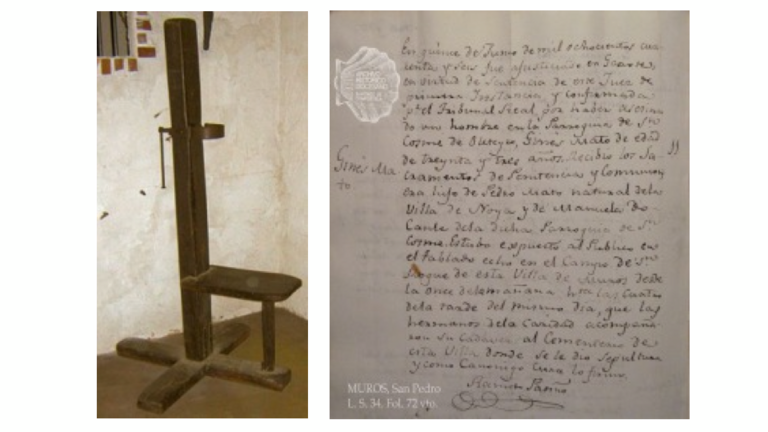 En quince de Junio de mil ochocientos cua
renta y seis fue ajusticiado en Garrote,
en virtud de Sentencia de este Juez de
primera Instancia, y confirmada
pr. el Tribunal Real, por haber asesina
do un hombre en la Parroquia de Sta.
Cosme de Outeyro, Ginés Mato de edad
de treynta y tres años. Recibio los Sa
cramentos de Penitencia y Comunion,
era hijo de Pedro Mato natural dela
Villa de Noya y de Manuela
dela dicha Parroquia de Sn.
Cosme. Estubo espuesto al Publico en
el tablado echo en el Campo de Sn.
Roque de esta Villa de Muros desde
la once dela mañana hta las cuatro
dela tarde del mismo dia, que los
hermanos dela Caridad acompaña
ron su Cadaver al Cementerio de
esta Villa donde se le dio sepultura
y como Canonigo Cura lo firmo.
Ramon
Ginés Ma
to.
ARCHIVO
HISTÓRICO
DIOCESANO
MUROS, San Pedro
L. 5. 34. Fol. 72 vto.